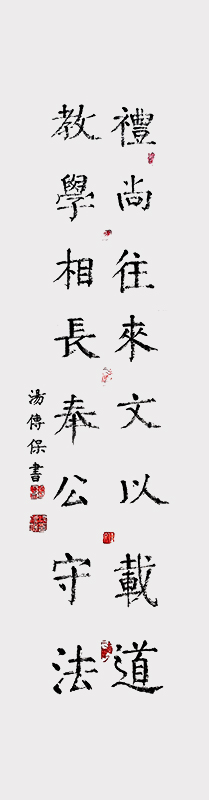 禮尚往來文以載道
教學相長奉公守法
湯傳保書